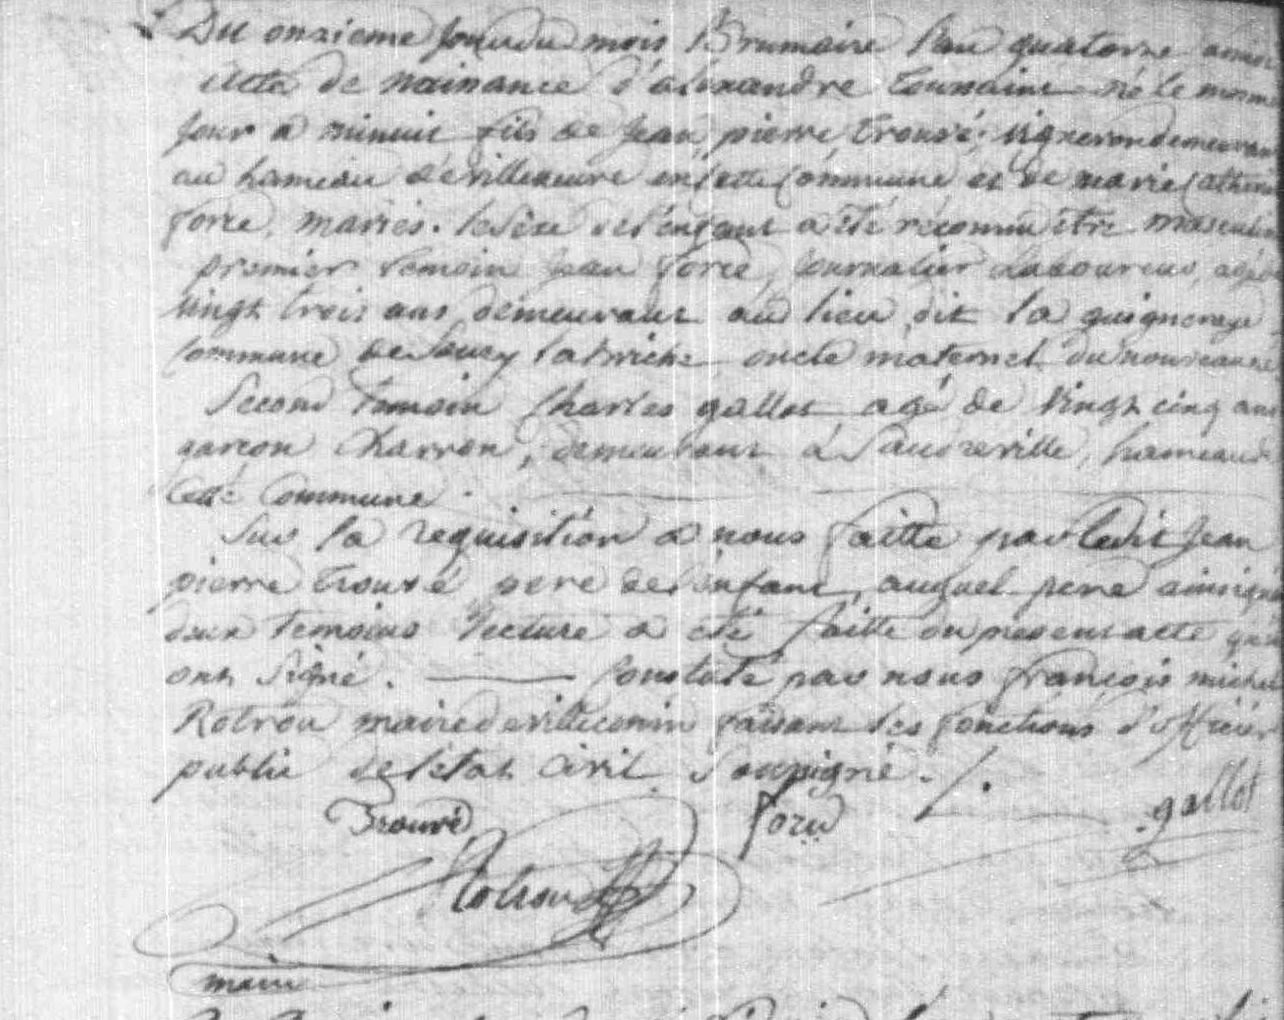 Du onzieme Jour du mois Brumaire l'an quatorze
acte de naissance d'alexandre toussaint né le meme
Jour a minuit fils de Jean pierre trouvé, vigneron demeurant
au hameau de villeneuve en cette Commune et de marie Catherine
forie, mariés. le sèxe de l'enfant a été reconnu être masculin
premier temoin Jean forié, Journalier Laboureur, agé de
vingt trois ans, demeurant au lieu dit la
Commune de Soucy la briche, oncle maternel du nouveau né
Second temoin Charles gallot agé de vingt cinq ans
garcon Charron, demeurant à Saudreville, hameau de
cette Commune.
Sur la requisition a nous faitte par ledit Jean
pierre trouvé pere de l'enfant, auquel pere ainsi qu'aux
deux temoins lecture a été faitte du present acte qu'ils
ont signé. Constaté par nous françois michel
Rotrou maire de villeconin faisant les fonctions d'officier
public de l'état Civil Soussigné.
Trouvé gallot
Rotrou
maire